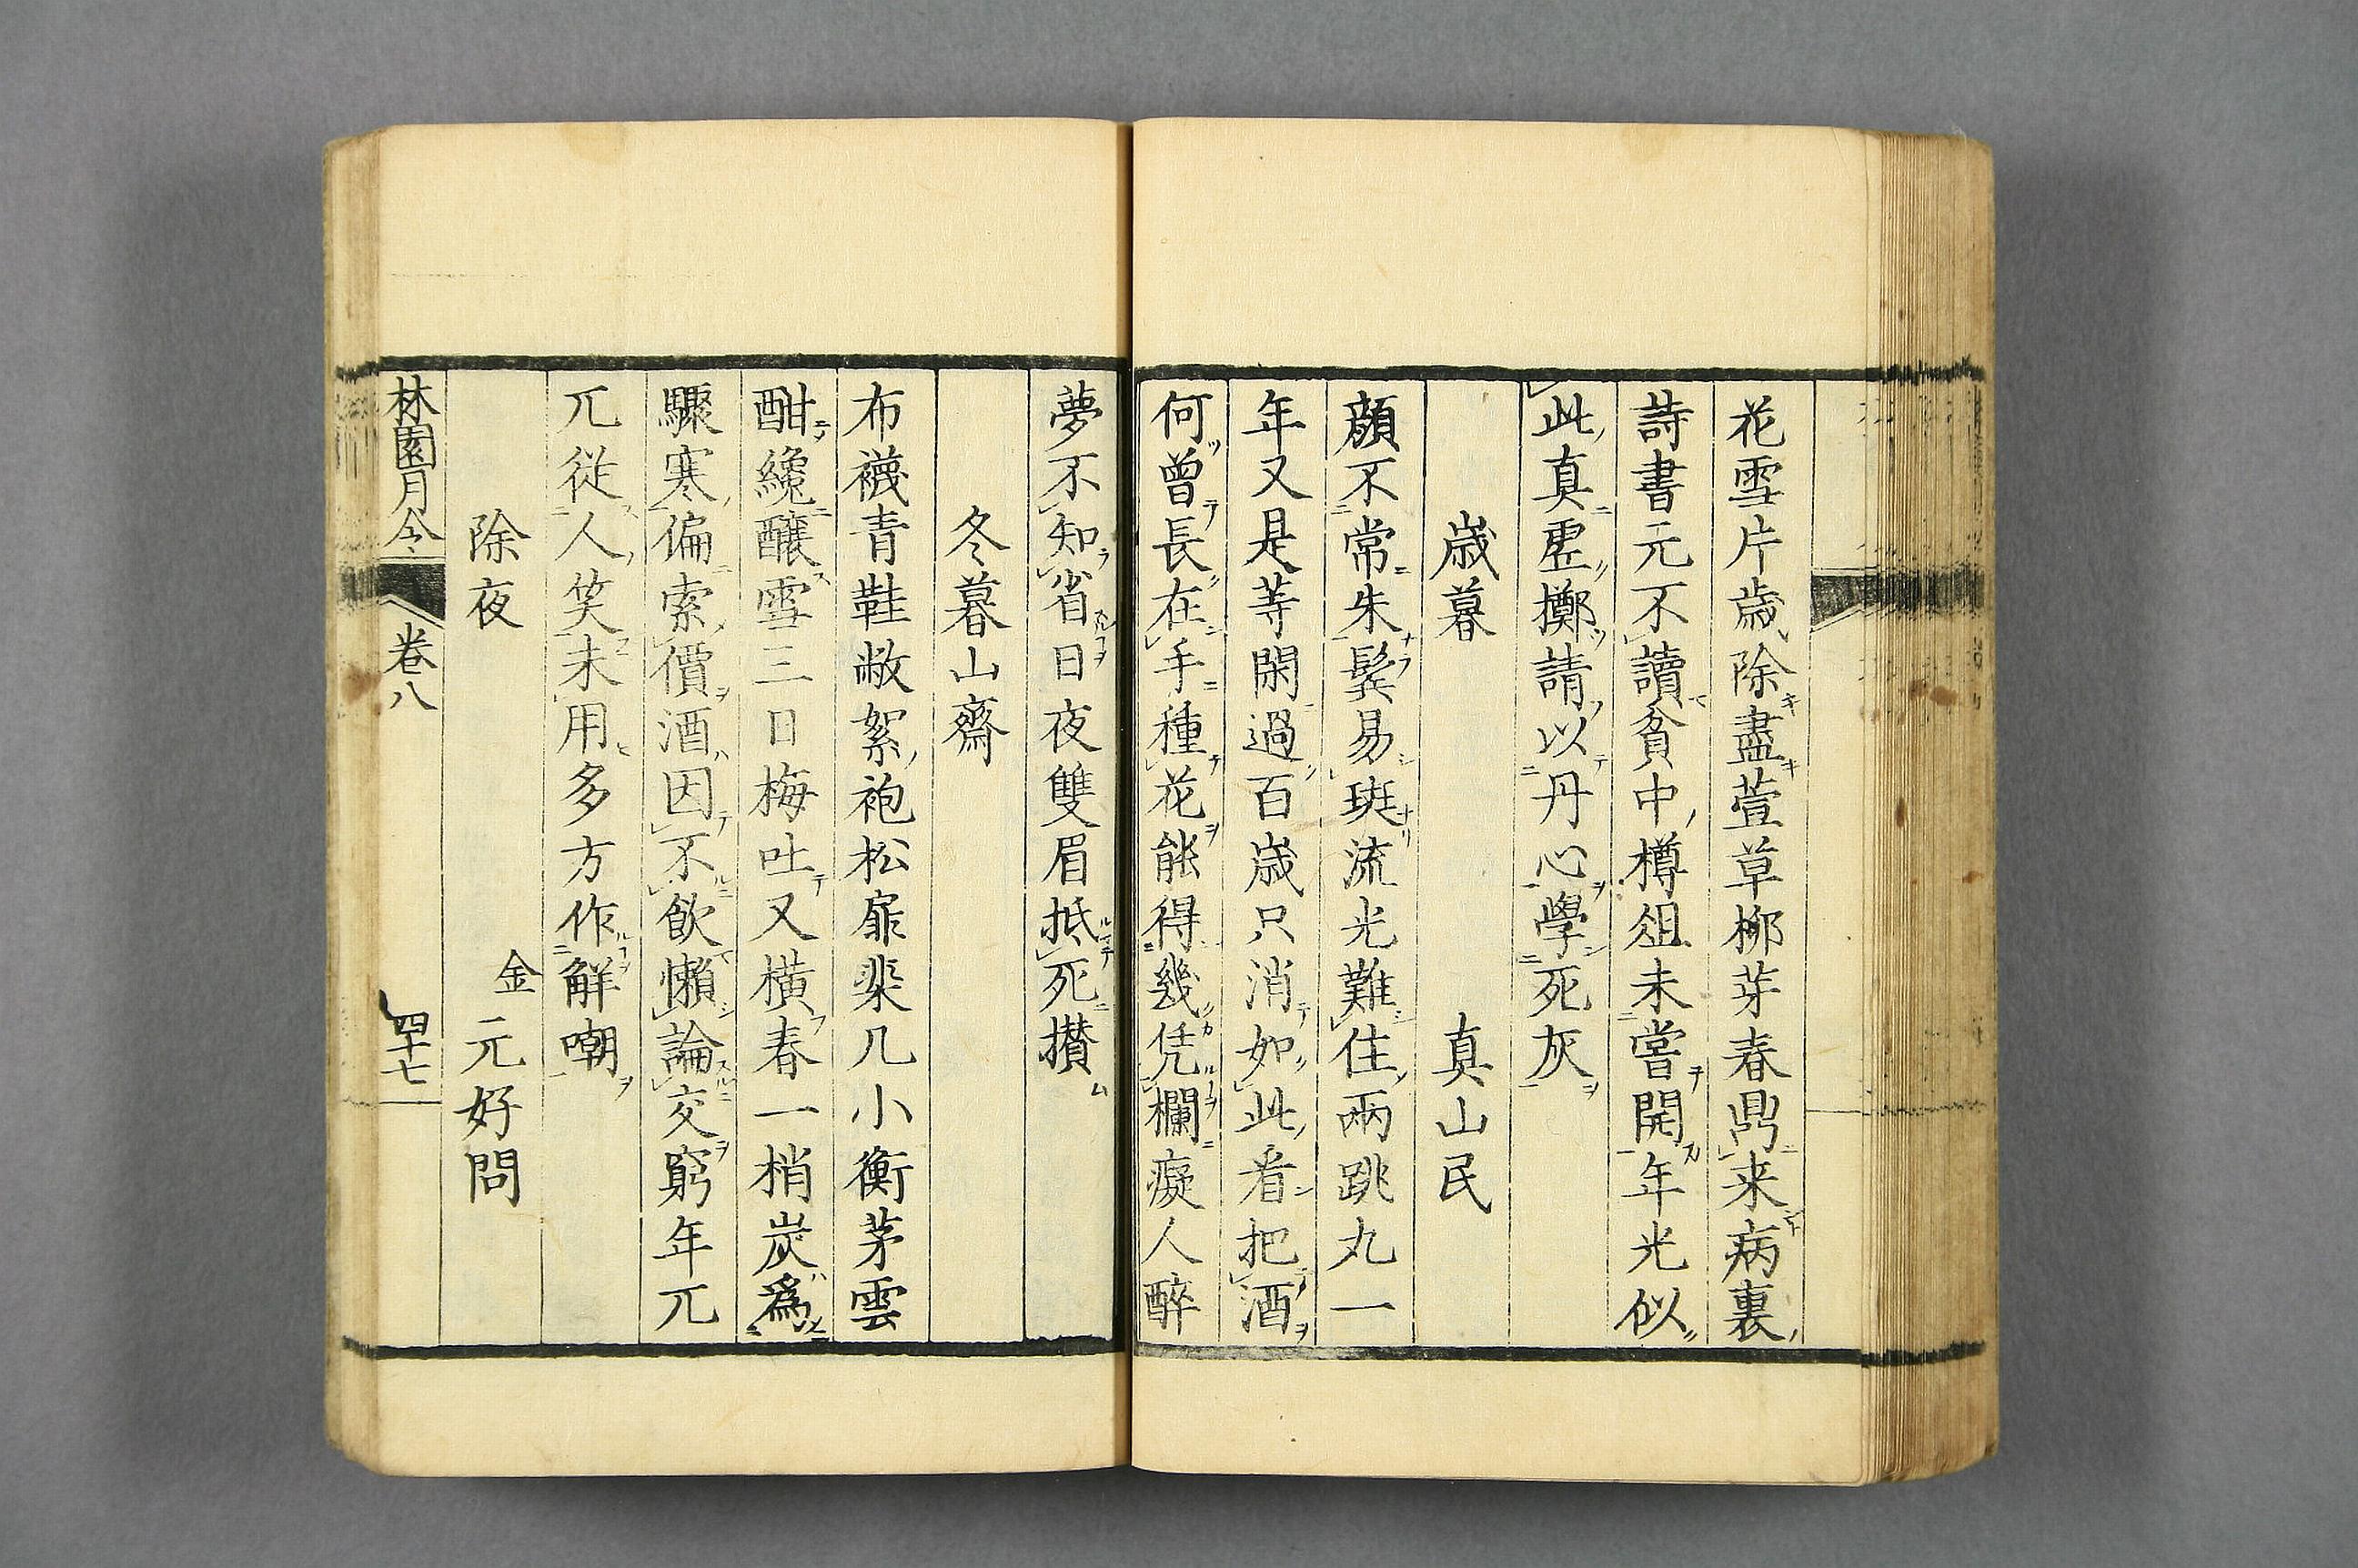 花雪片歳除盡萱草栁芽春𭥍来病裏
詩書元不讀貧中樽俎未嘗開年光似
此真虚擲請以丹心學死灰
歳暮 真山民
顔不常朱鬂易斑流光難住兩跳丸一
年又是等閑過百歳只消如此看把酒
何曽長在手種花能得幾凭欄癡人醉
夢不知省日夜雙眉抵死攅
冬暮山齋
布襪青鞋敝絮袍松扉棐几小衡茅雲
酣纔釀雪三日梅吐又横春一梢炭爲
驟寒偏索價酒因不飲懶論交窮年兀
兀從人笑未用多方作觧嘲
除夜 金 元好問
林園月令 卷八 四十七